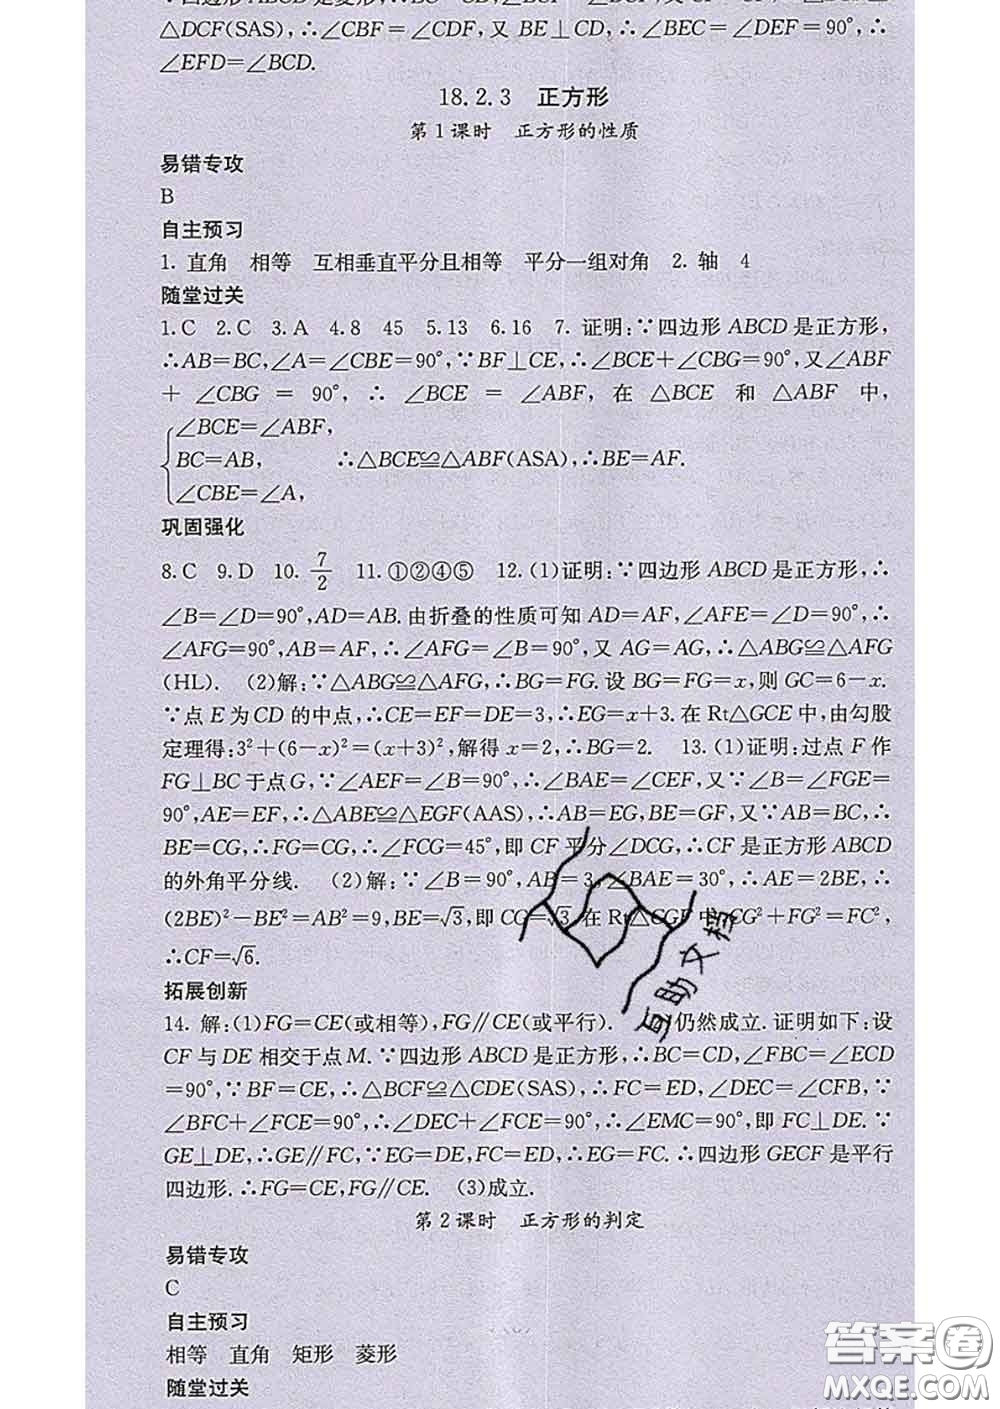 △DCF(SAS),∴∠CBF=∠CDF,又 BE⊥CD,∴∠BEC=∠DEF=90°,∴
∠EFD=∠BCD.
18.2.3 正方形
第1课时 正方形的性质
易错专攻
B
自主预习
1. 直角 相等 互相垂直平分且相等 平分一组对角 2. 轴 4
随堂过关
1.C 2.C 3.A 4.8 45 5.13 6.16 7. 证明:∵四边形 ABCD 是正方形,
∴AB=BC,∠A=∠CBE=90°,∵BF⊥CE,∴∠BCE+∠CBG=90°,又∠ABF
+∠CBG=90°,∴∠BCE=∠ABF,在△BCE 和△ABF 中,
∠BCE=∠ABF,
BC=AB, ∴△BCE≌△ABF(ASA),∴BE=AF.
∠CBE=∠A,
巩固强化
8.C 9.D 10. 7/2 11.①②④⑤ 12.(1)证明:∵四边形 ABCD 是正方形,∴
∠B=∠D=90°,AD=AB.由折叠的性质可知 AD=AF,∠AFE=∠D=90°,∴
∠AFG=90°,AB=AF,∴∠AFG=∠B=90°,又 AG=AG,∴△ABG≌△AFG
(HL). (2)解:∵△ABG≌△AFG,∴BG=FG.设 BG=FG=x,则 GC=6-x.
∵点 E 为 CD 的中点,∴CE=EF=DE=3,∴EG=x+3.在 Rt△GCE 中,由勾股
定理得:3²+(6-x)²=(x+3)²,解得 x=2,∴BG=2. 13.(1)证明:过点 F 作
FG⊥BC 于点 G,∵∠AEF=∠B=90°,∴∠BAE=∠CEF,又∵∠B=∠FGE=
90°,AE=EF,∴△ABE≌△EGF(AAS),∴AB=EG,BE=GF,又∵AB=BC,∴
BE=CG,∴FG=CG,∴∠FCG=45°,即 CF 平分∠DCG,∴CF 是正方形 ABCD
的外角平分线. (2)解:∵∠B=90°,AB=3,∠BAE=30°,∴AE=2BE,∴
(2BE)²-BE²=AB²=9,BE=√3,即 CG=√3.在 Rt△CGF 中,CG²+FG²=FC²,
∴CF=√6.
拓展创新
14. 解:(1)FG=CE(或相等),FG∥CE(或平行). 仍然成立.证明如下:设
CF 与 DE 相交于点 M.∵四边形 ABCD 是正方形,∴BC=CD,∠FBC=∠ECD
=90°,∵BF=CE,∴△BCF≌△CDE(SAS),∴FC=ED,∠DEC=∠CFB,∵
∠BFC+∠FCE=90°,∴∠DEC+∠FCE=90°,∴∠EMC=90°,即 FC⊥DE.∵
GE⊥DE,∴GE∥FC,∵EG=DE,FC=ED,∴EG=FC.∴四边形 GECF 是平行
四边形.∴FG=CE,FG∥CE. (3)成立.
互助文档
第2课时 正方形的判定
易错专攻
C
自主预习
相等 直角 矩形 菱形
随堂过关
答案圈
MXQE.COM